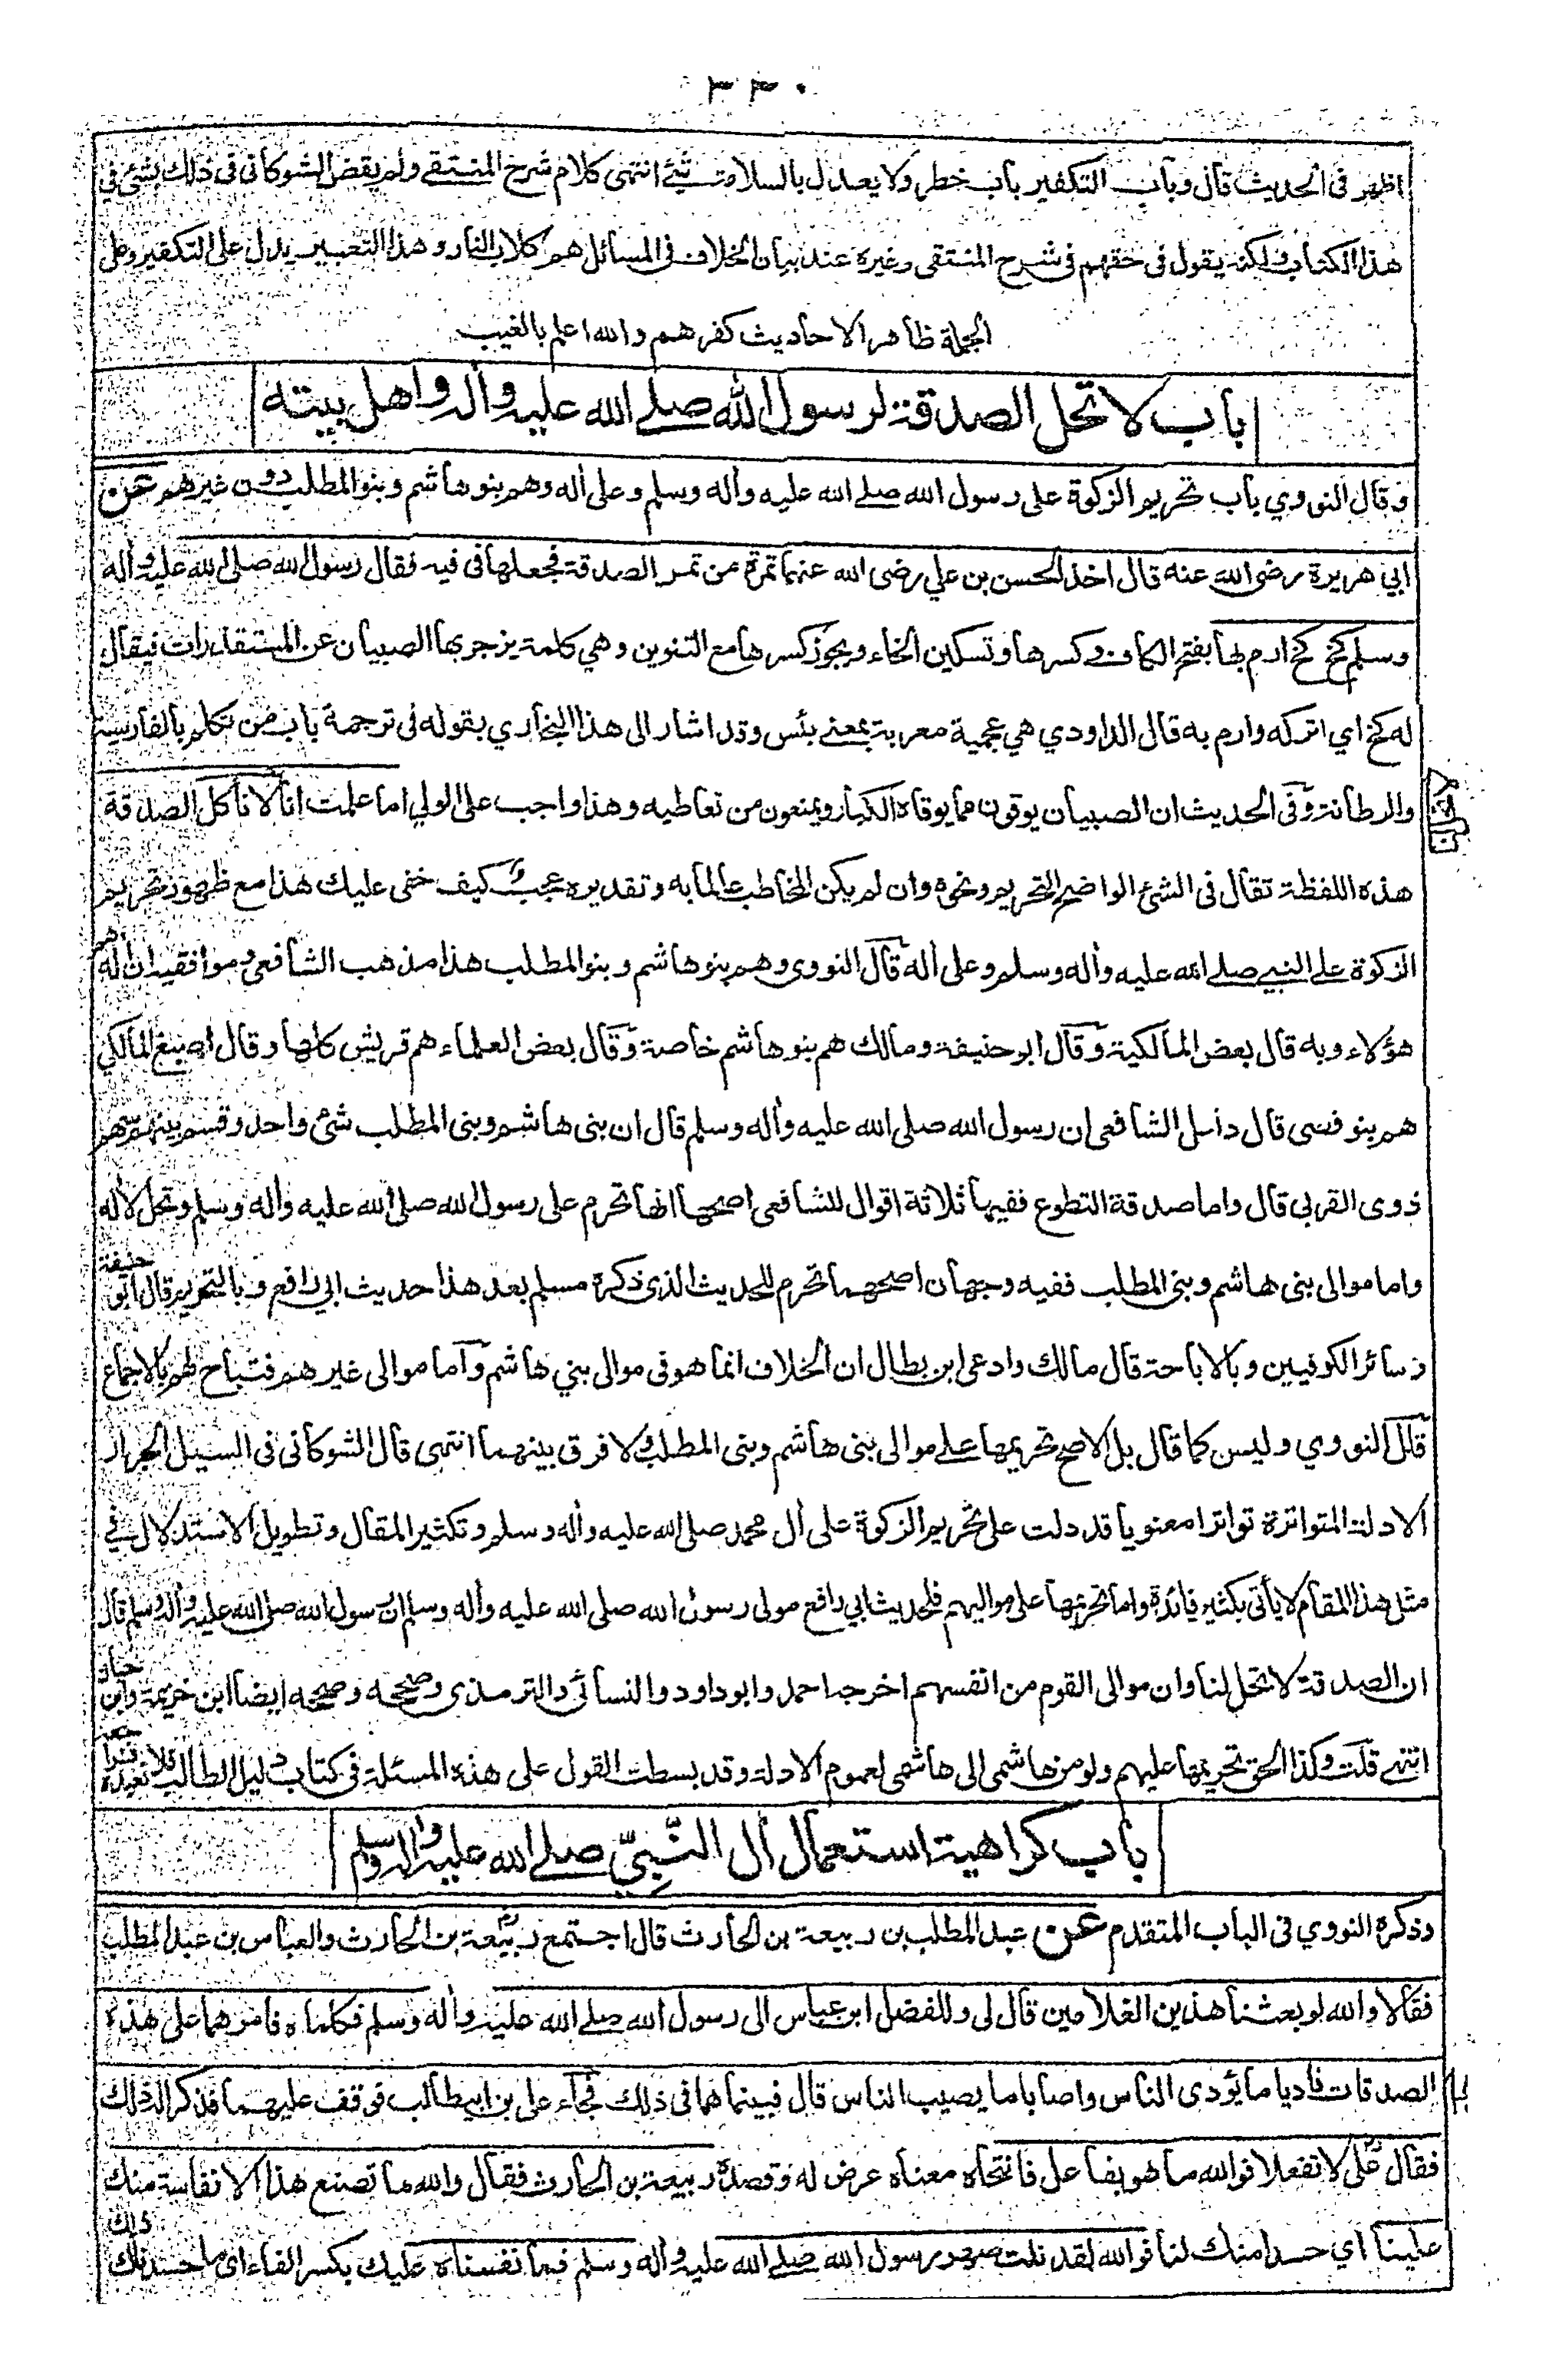 ٣٣٠
اظهر فى الحديث قال وباب التكفير باب خطر ولا يعدل بالسلامة شئ انتهى كلام شرح المنتقے ولم يقض الشوكانى فى ذلك بشئ فى
هذا الكتاب ولكنه يقول فى حقهم فى شرح المنتقى وغيره عند بيان الخلاف فى المسائل هم كلاب النار وهذا التعبير يدل على التكفير وعلى
الجملة ظاهر الاحاديث كفرهم والله اعلم بالغيب
باب لا تحل الصدقة لرسول الله صلے الله عليه وأله واهل بيته
وقال النووي باب تحريم الزكوة على رسول الله صلے الله عليه وأله وسلم وعلى أله وهم بنو هاشم وبنو المطلب دون غيرهم عن
ابي هريرة رضى الله عنه قال اخذ الحسن بن علي رضى الله عنهما تمرة من تمر الصدقة فجعلها فى فيه فقال رسول الله صلى الله عليه وأله
وسلم كخ كخ ارم بها بفتح الكاف وكسرها وتسكين الخاء ويجوز كسرها مع التنوين وهي كلمة يزجر بها الصبيان عن المستقذرات فيقال
له كخ اي اتركه وارم به قال الداودي هي عجمية معربة بمعنے بئس وقد اشار الى هذا البخاري بقوله فى ترجمة باب من تكلم بالفارسية
والرطانة وفى الحديث ان الصبيان يوقون مما يوقاه الكبار ويمنعون من تعاطيه وهذا واجب على الولي اما علمت انا لا نأكل الصدقة
هذه اللفظة تقال فى الشئ الواضح التحريم ونحوه وان لم يكن المخاطب عالما به وتقديره عجب كيف خفى عليك هذا مع ظهور تحريم
الزكوة على النبي صلے الله عليه وأله وسلم وعلى أله قال النووى وهم بنو هاشم وبنو المطلب هذا مذهب الشافعى وموافقيه ان أله هم
هؤلاء وبه قال بعض المالكية وقال ابو حنيفة ومالك هم بنو هاشم خاصة وقال بعض العلماء هم قريش كلها وقال اصبغ المالكي
هم بنو قصى قال دليل الشافعى ان رسول الله صلى الله عليه وأله وسلم قال ان بنى هاشم وبنى المطلب شئ واحد وقسم بينهم سهم
ذوى القربى قال واما صدقة التطوع ففيها ثلاثة اقوال للشافعى اصحها انها تحرم على رسول الله صلى الله عليه وأله وسلم وتحل لأله
واما موالى بنى هاشم وبنى المطلب ففيه وجهان اصحهما تحرم للحديث الذى ذكره مسلم بعد هذا حديث ابي رافع وبالتحريم قال ابو حنيفة
وسائر الكوفيين وبالاباحة قال مالك وادعى ابن بطال ان الخلاف انما هو فى موالى بني هاشم وأما موالى غيرهم فتباح لهم بالاجماع
قال النووي وليس كما قال بل الاصح تحريمها على موالى بنى هاشم وبنى المطلب ولا فرق بينهما انتهى قال الشوكانى فى السيل الجرار
الادلة المتواترة تواترا معنويا قد دلت على تحريم الزكوة على أل محمد صلى الله عليه وأله وسلم وتكثير المقال وتطويل الاستدلال في
مثل هذا المقام لا يأتى بكثير فائدة واما تحريمها على مواليهم فلحديث ابي رافع مولى رسول الله صلى الله عليه وأله وسلم ان رسول الله صلى الله عليه وأله وسلم قال
ان الصدقة لا تحل لنا وان موالى القوم من انفسهم اخرجه احمد وابو داود والنسائى والترمذى وصححه وصححه ايضا ابن خزيمة وابن حبان
انتهے قلت وكذا الحق تحريمها عليهم ولو من هاشمى الى هاشمى لعموم الادلة وقد بسطت القول على هذه المسئلة فى كتاب دليل الطالب فلا نعيده
باب كراهية استعمال أل النَّبِيّ صلے الله عليه وأله وسلم
وذكره النووي فى الباب المتقدم عن عبد المطلب بن ربيعة بن الحارث قال اجتمع ربيعة بن الحارث والعباس بن عبد المطلب
فقالا والله لو بعثنا هذين الغلامين قال لى وللفضل ابن عباس الى رسول الله صلے الله عليه وأله وسلم فكلماه فامرهما على هذه
الصدقات فأديا ما يؤدى الناس واصابا ما يصيب الناس قال فبينما هما فى ذلك فجاء على بن ابيطالب فوقف عليهما فذكرا له ذلك
فقال على لا تفعلا فوالله ما هو بفاعل فانتحاه معناه عرض له وقصده ربيعة بن الحارث فقال والله ما تصنع هذا الا نفاسة منك
علينا اي حسدا منك لنا فوالله لقد نلت صهر رسول الله صلے الله عليه وأله وسلم فما نفسناه عليك بكسر الفاء اى ما حسدناك ذلك